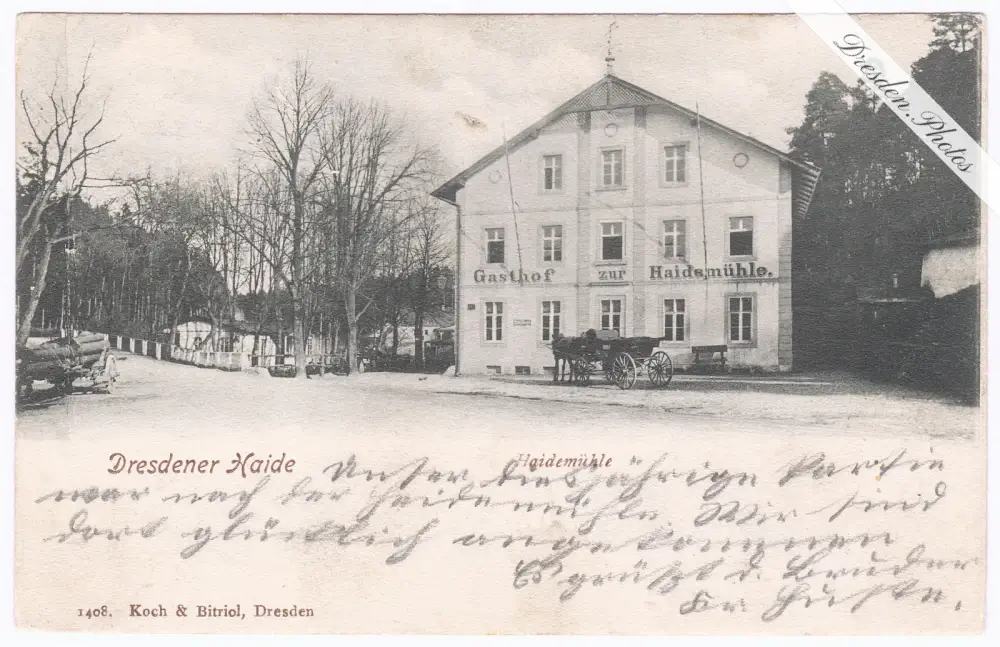 Dresden.Photos
Gasthof zur Haidemühle.
Dresdener Haide
Haidemühle
Unser diesjährige Partie
war nach der Heidemühle. Wir sind
dort glücklich angekommen
Es grüßt d. Bruder
1408. Koch & Bitriol, Dresden